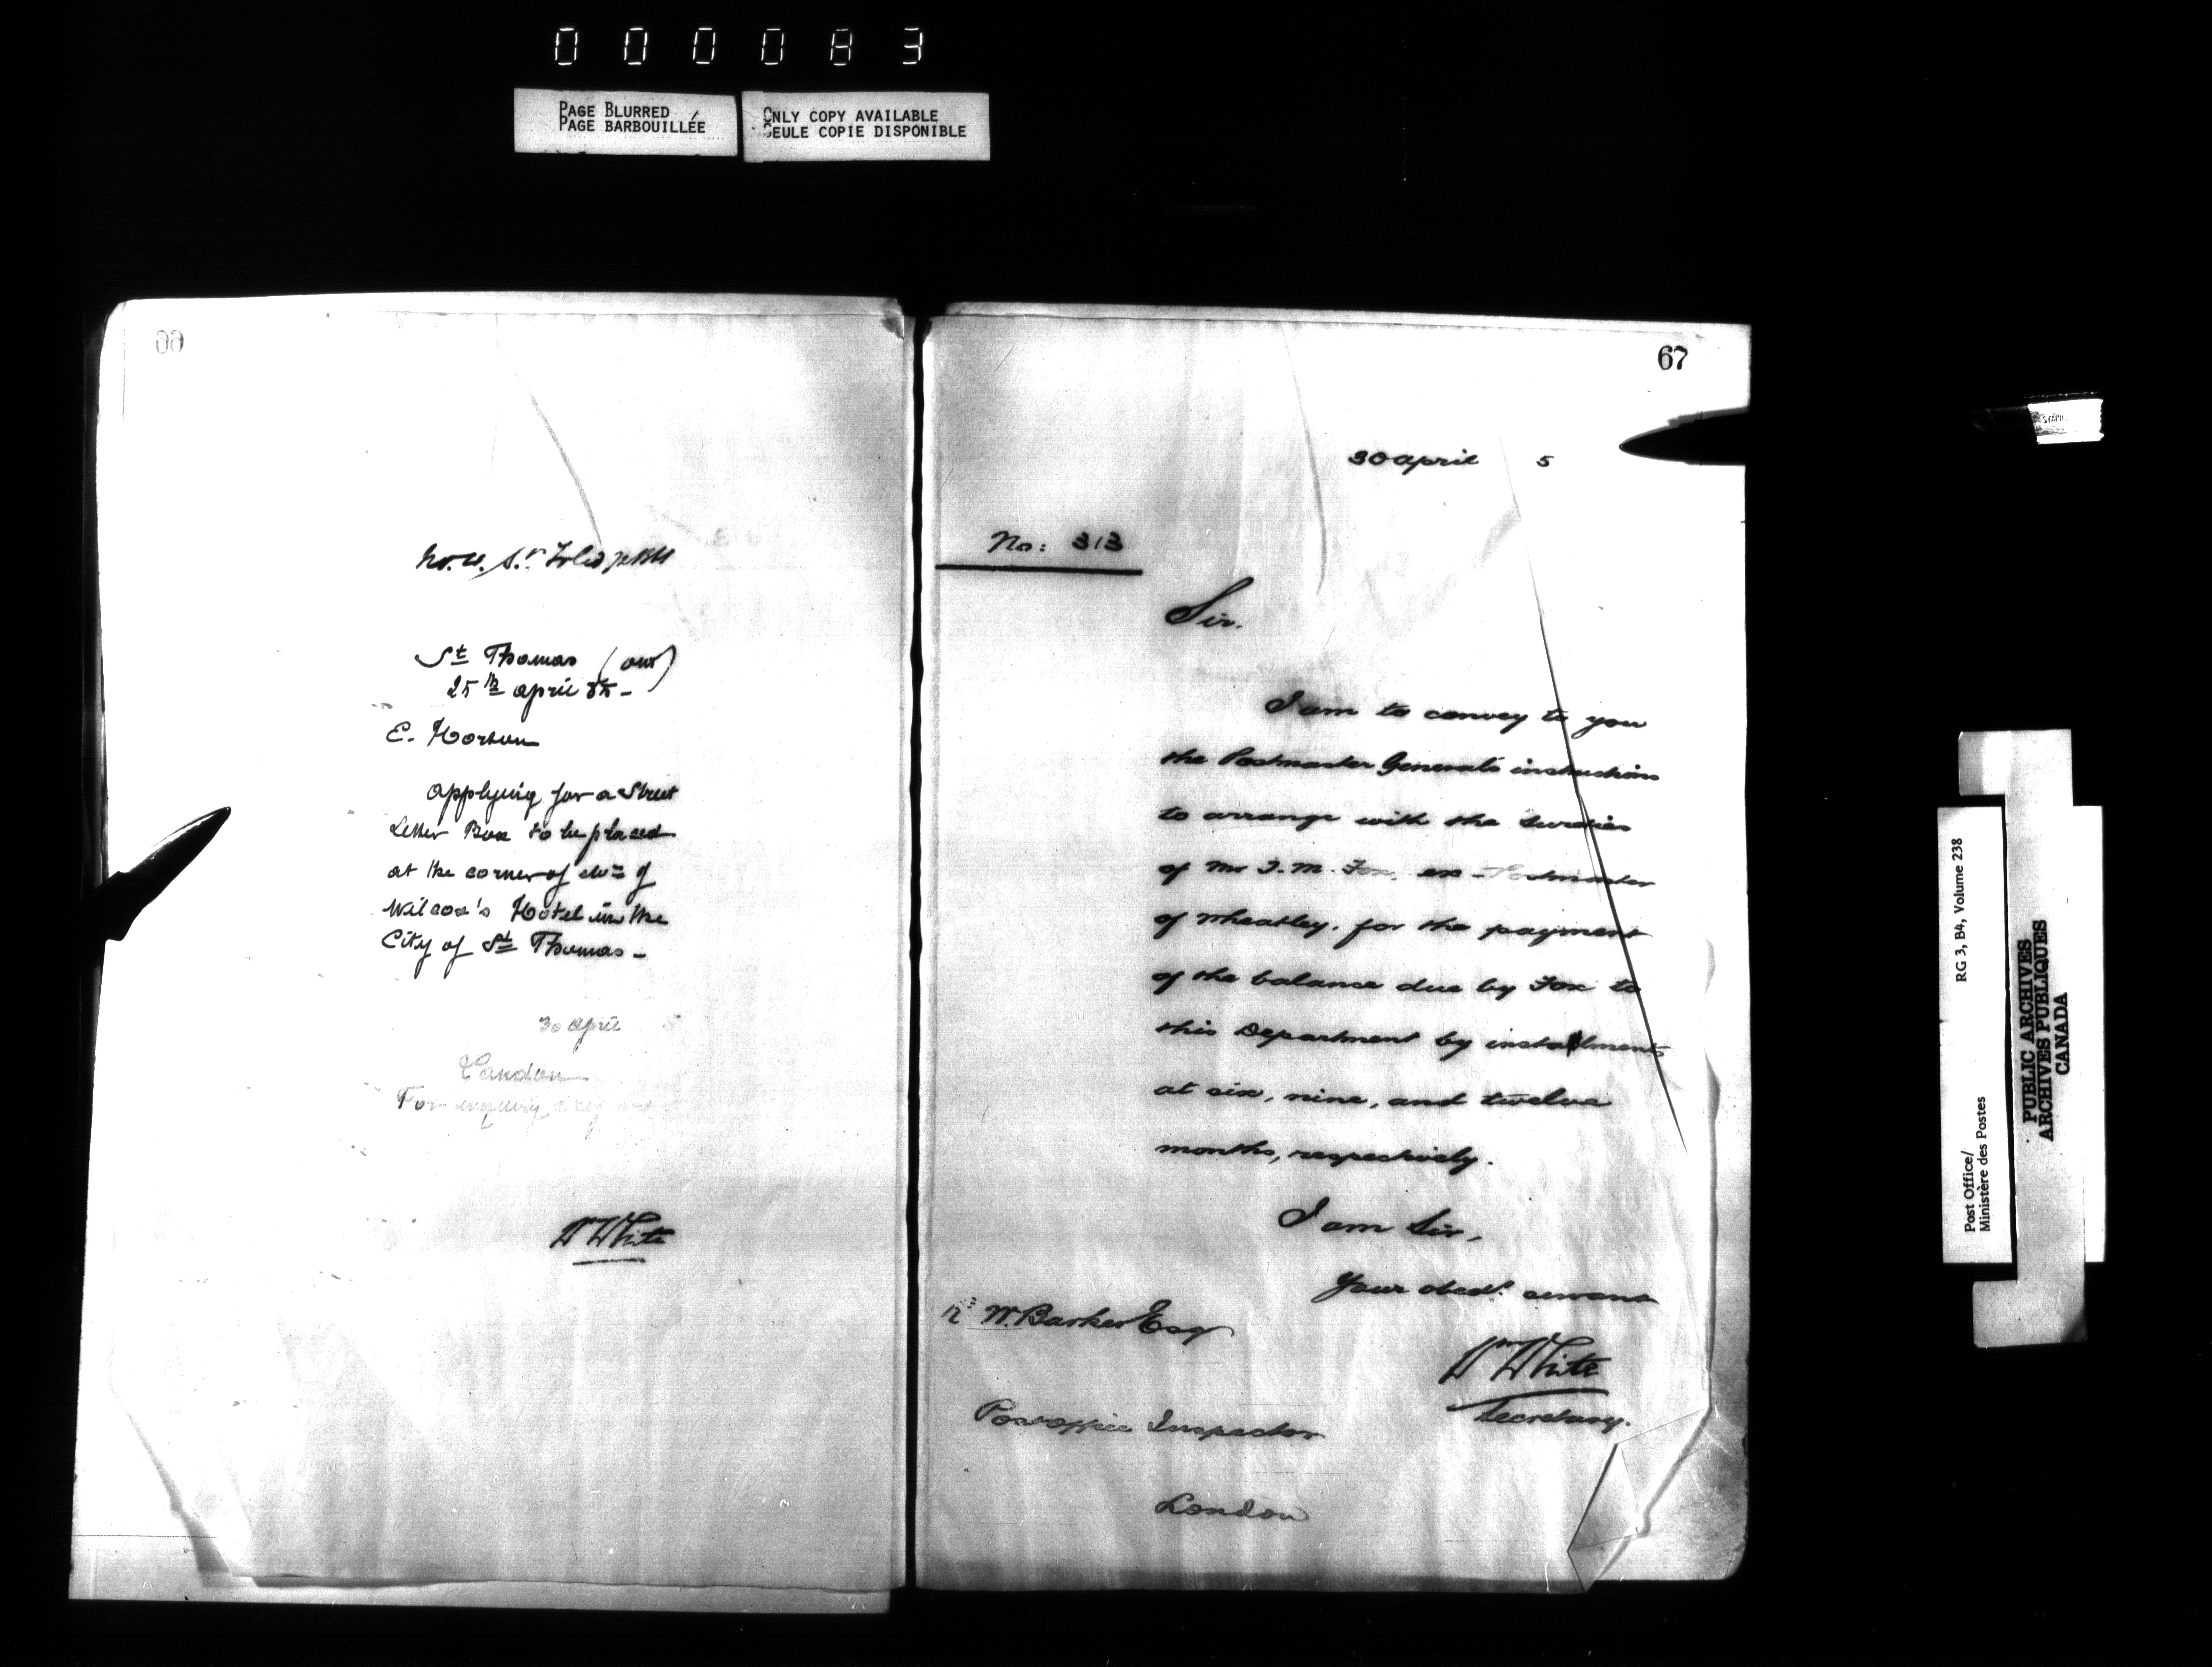 000083
PAGE BLURRED
PAGE BARBOUILLÉE
ONLY COPY AVAILABLE
SEULE COPIE DISPONIBLE
66
St Thomas (Ont)
25th april 85-
E. Horton
applying for a Street
Letter Box to be placed
at the corner of
Wilcox's Hotel in the
City of St Thomas -
30 april 5
London
For enquiry &
Wm White
67
30 april 5
No: 313
Sir.
I am to convey to you
the Postmaster General's instructions
to arrange with the sureties
of Mr J. M. Fox, ex-Postmaster
of Wheatley, for the payment
of the balance due by Fox to
this Department by instalments
at six, nine, and twelve
months, respectively.
I am Sir,
Your obedt. servant
Wm White
Secretary.
R. W. Barker Esq
Post Office Inspector
London
Post Office/
Ministère des Postes
RG 3, B4, Volume 238
PUBLIC ARCHIVES
ARCHIVES PUBLIQUES
CANADA